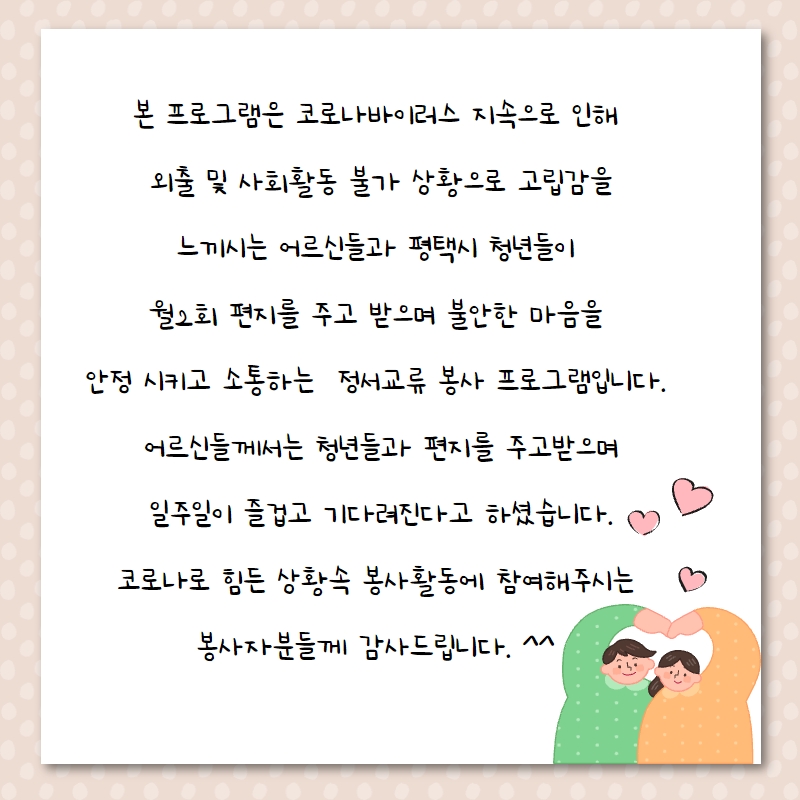 본 프로그램은 코로나바이러스 지속으로 인해
외출 및 사회활동 불가 상황으로 고립감을
느끼시는 어르신들과 평택시 청년들이
월2회 편지를 주고 받으며 불안한 마음을
안정 시키고 소통하는 정서교류 봉사 프로그램입니다.
어르신들께서는 청년들과 편지를 주고받으며
일주일이 즐겁고 기다려진다고 하셨습니다.
코로나로 힘든 상황속 봉사활동에 참여해주시는
봉사자분들께 감사드립니다. ^^